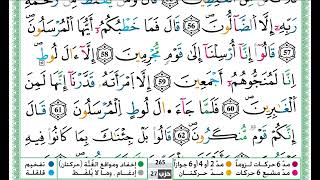 رَبِّهِۦٓ إِلَّا ٱلضَّآلُّونَ ٥٦ قَالَ فَمَا خَطْبُكُمُۥٓ أَيُّهَا ٱلْمُرْسَلُونَ
٥٧ قَالُوٓاْ إِنَّآ أُرْسِلْنَآ إِلَىٰ قَوْمٍ مُّجْرِمِينَ ٥٨ إِلَّآ ءَالَ لُوطٍ
إِنَّا لَمُنَجُّوهُمُۥٓ أَجْمَعِينَ ٥٩ إِلَّا ٱمْرَأَتَهُۥ قَدَّرْنَآ إِنَّهَا لَمِنَ
ٱلْغَٰبِرِينَ ٦٠ فَلَمَّا جَآءَ ءَالَ لُوطٍ ٱلْمُرْسَلُونَ ٦١ قَالَ
إِنَّكُمْ قَوْمٌ مُّنكَرُونَ ٦٢ قَالُواْ بَلْ جِئْنَٰكَ بِمَا كَانُواْ فِيهِ
مدّ 6 حركات لزوماً مدّ 2 أو 4 أو 6 جوازاً 265 إخفاء ومواقع الغُنَّة (حركتان) تفخيم
مدّ مشبع 6 حركات مدّ حركتان حزب 27 إدغام، وما لا يُلفَظ قلقلة